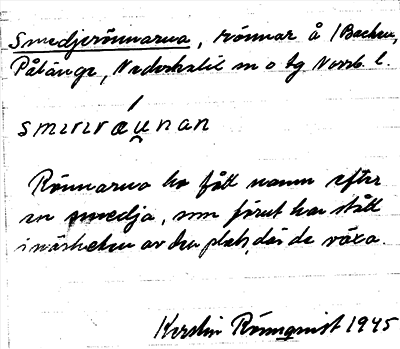 Smedjerönnarna, rönnar å /Backen,
Påläng, Nederkalix sn o tg Norrb. l.
smırırǽu̯nan
Rönnarna ha fått namn efter
en smedja, som förut har stått
i närheten av den plats, där de växa.
Kerstin Rönnqvist 1945